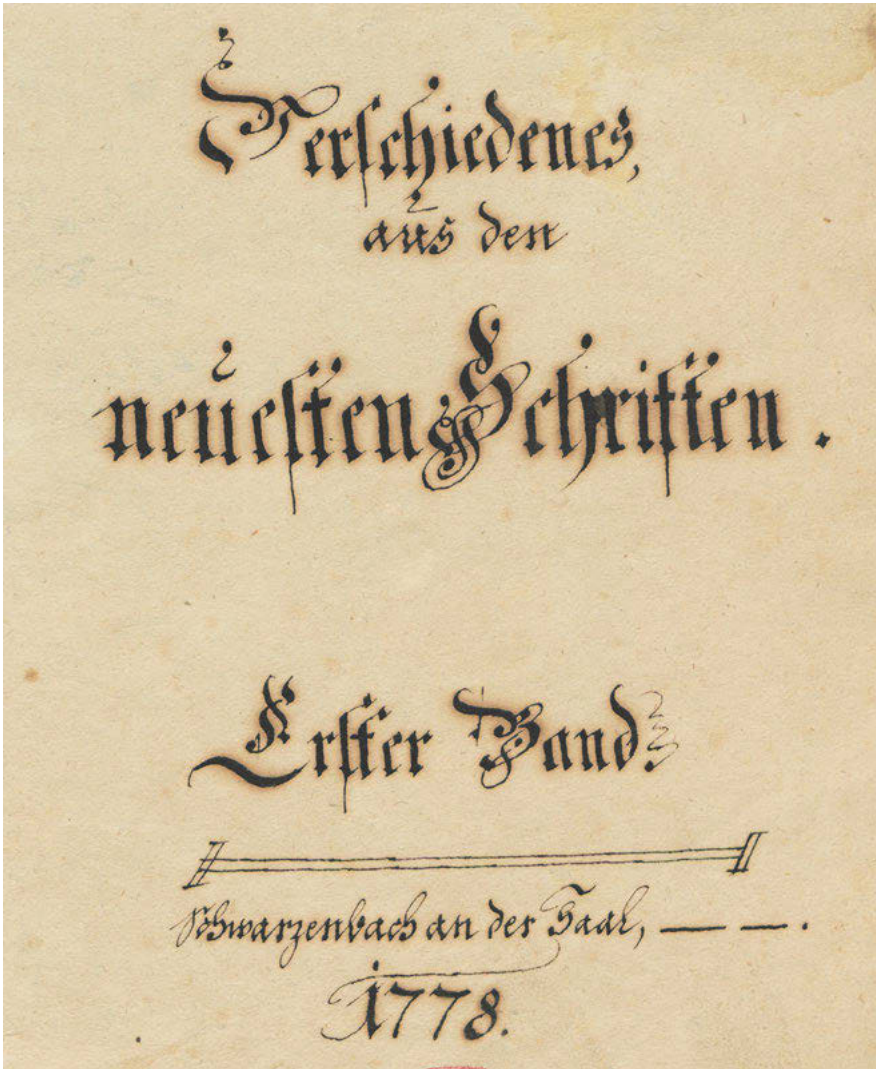 Verschiedenes,
aus den
neuesten Schriften.
Erster Band.
Schwarzenbach an der Saal, — —.
1778.